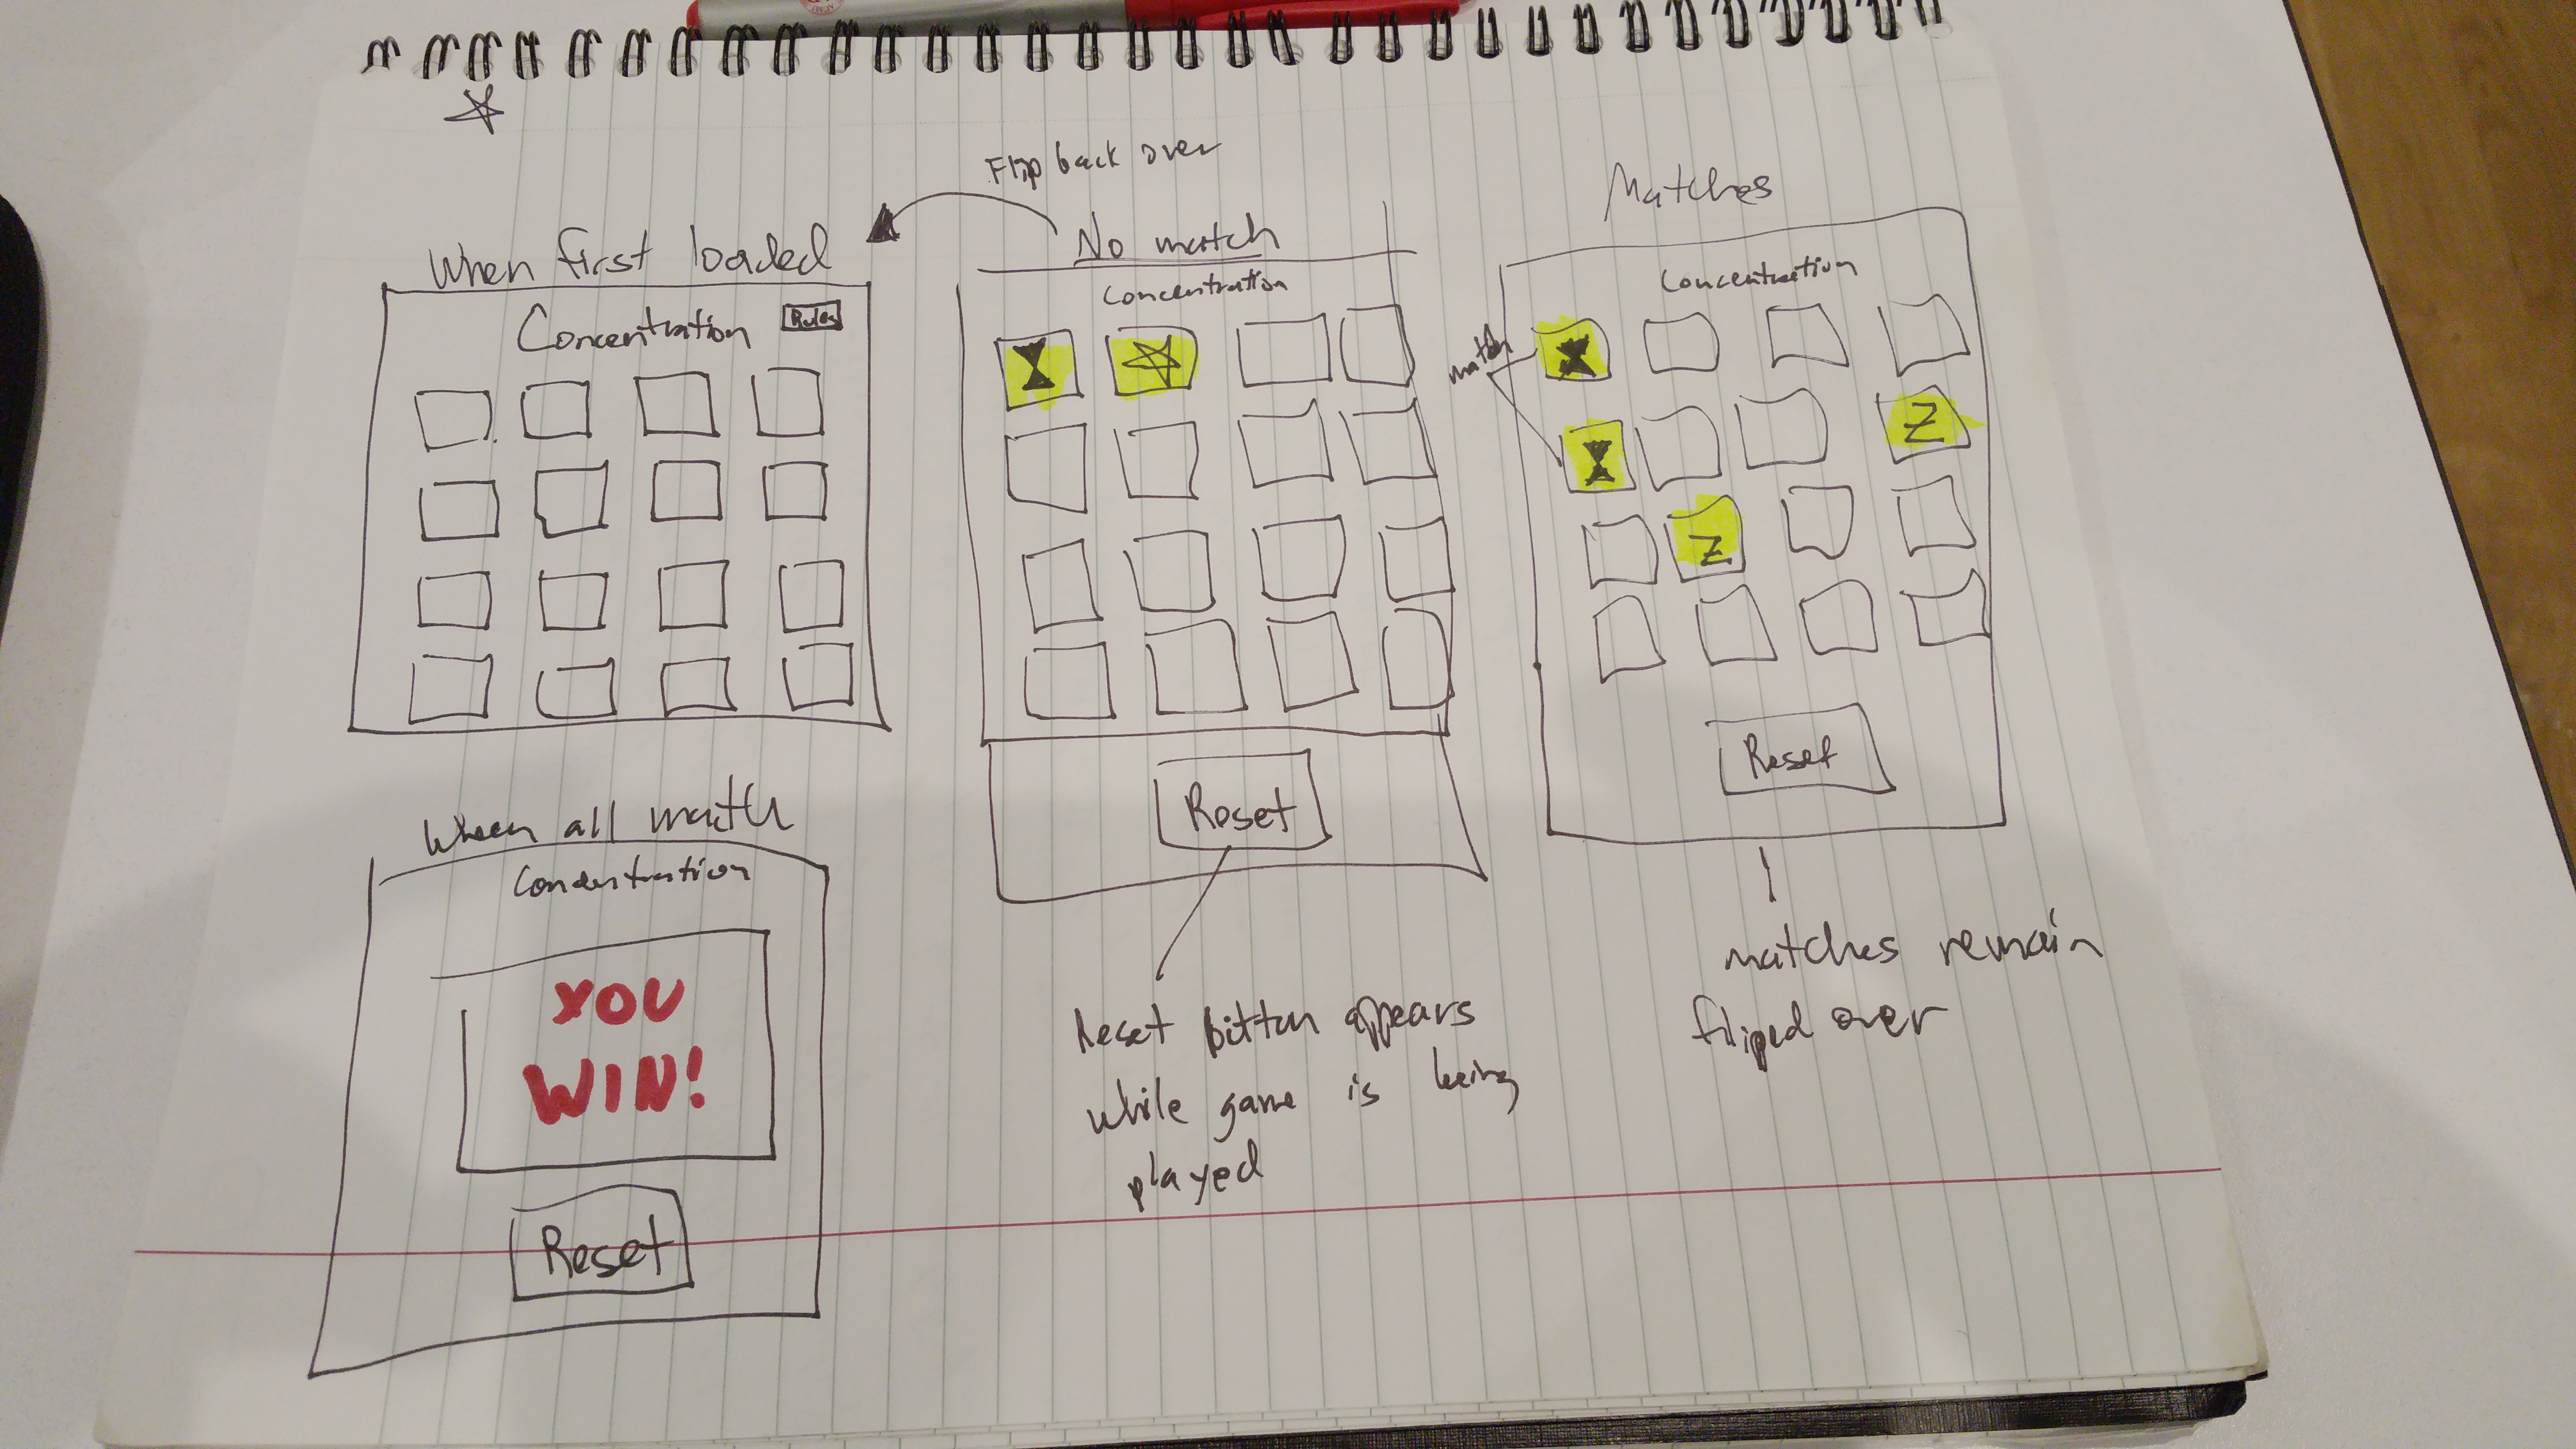 Flip back over
When first loaded
Concentration
Rules
No match
Concentration
Reset
Reset bitton appears
while game is being
played
Matches
Concentration
match
Z
Z
Reset
matches remain
fliped over
When all match
Concentration
YOU
WIN!
Reset